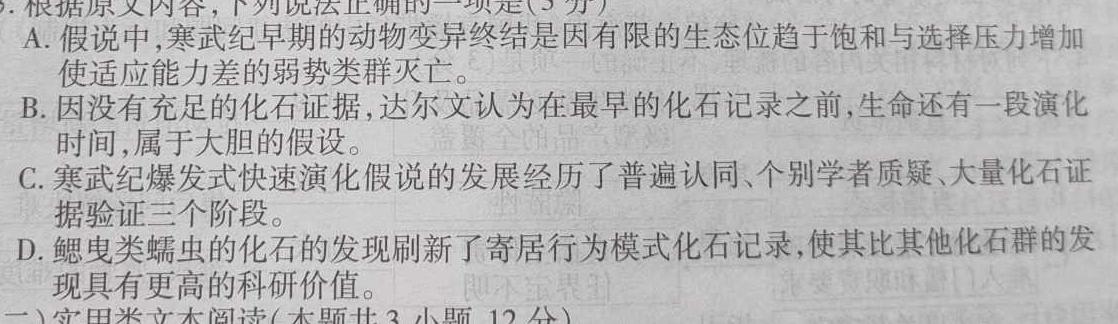 3. 根据原文内容,下列说法正确的一项是(3分)
A. 假说中,寒武纪早期的动物变异终结是因有限的生态位趋于饱和与选择压力增加
使适应能力差的弱势类群灭亡。
B. 因没有充足的化石证据,达尔文认为在最早的化石记录之前,生命还有一段演化
时间,属于大胆的假设。
C. 寒武纪爆发式快速演化假说的发展经历了普遍认同、个别学者质疑、大量化石证
据验证三个阶段。
D. 鳃曳类蠕虫的化石的发现刷新了寄居行为模式化石记录,使其比其他化石群的发
现具有更高的科研价值。
二)实用类文本阅读(本题共3小题,12分)